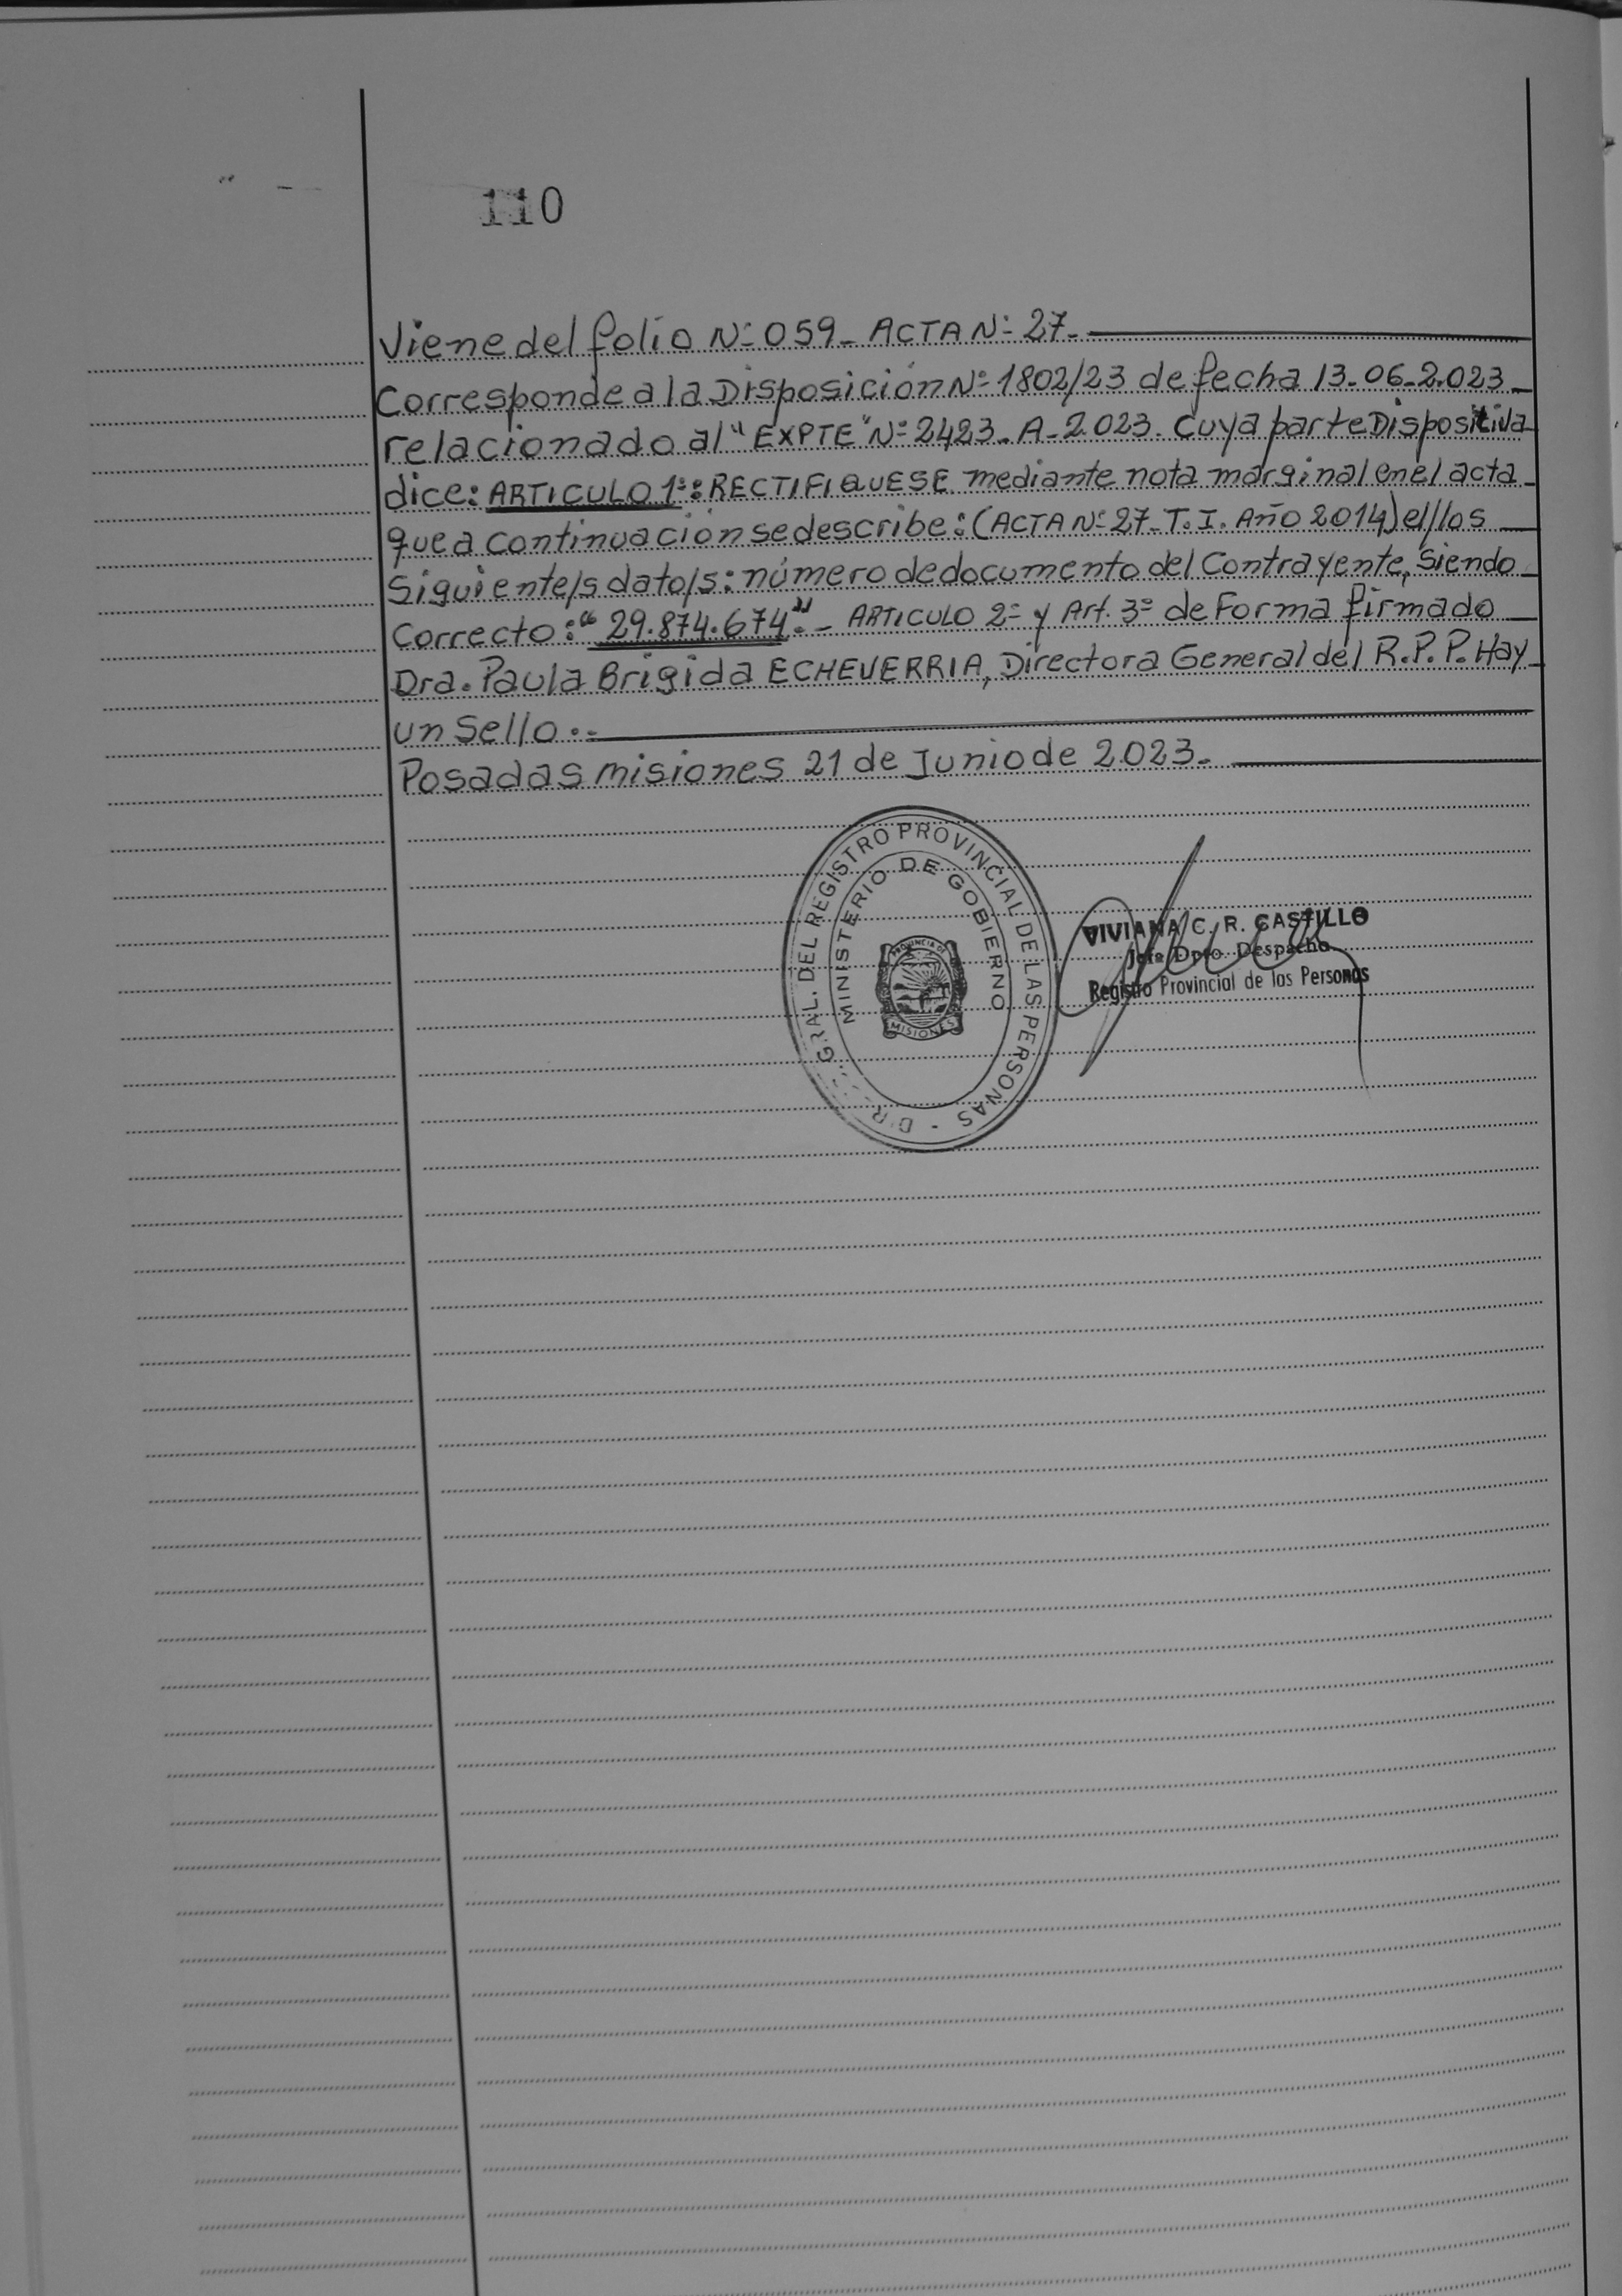 110
Viene del folio Nº 059- ACTA Nº 27-
Corresponde a la Disposición Nº 1802/23 de fecha 13-06-2.023-
relacionado al "EXPTE" Nº 2423- A-2.023. Cuya parte Dispositiva
dice: ARTICULO 1º: RECTIFIQUESE mediante nota marginal en el acta
que a continuación se describe: (ACTA Nº 27-T.I. Año 2014) el/los
Siguiente/s dato/s: número de documento del Contrayente, Siendo
Correcto: "29.874.674".- ARTICULO 2º y Art. 3º de Forma firmado
Dra. Paula Brigida ECHEVERRIA, Directora General del R.P.P. Hay
un Sello.-
Posadas misiones 21 de Junio de 2.023.-
GRAL. DEL REGISTRO PROVINCIAL DE LAS PERSONAS - DIR
MINISTERIO DE GOBIERNO
PROVINCIA DE
MISIONES
VIVIANA C. R. CASTILLO
Jefa Dpto. Despacho
Registro Provincial de las Personas